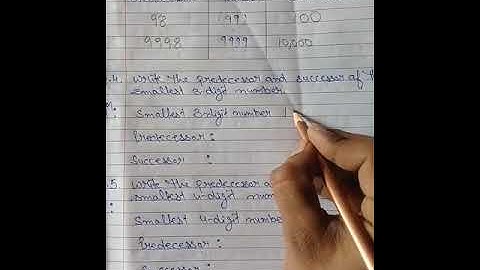 98 99 100
9998 9999 10,000
4. Write the predecessor and successor of
smallest 3-digit number.
Smallest 3-digit number 1
Predecessor :
Successor :
5 Write the predecessor
smallest 4-digit num
Smallest 4-digit number
Predecessor :
Successor :